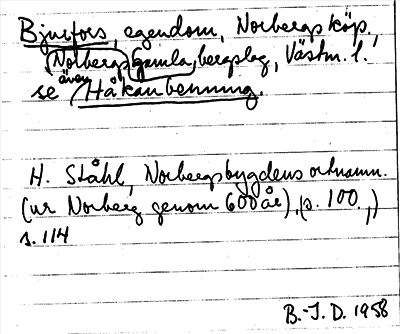 Bjurfors, egendom, Norbergs köp.,
Norbergs gamla bergslag, Västm. l.
se även Håkanbenning.
H. Ståhl, Norbergsbygdens ortnamn.
(ur Norberg genom 600 år), (s. 100,)
s. 114
B.-J. D. 1958